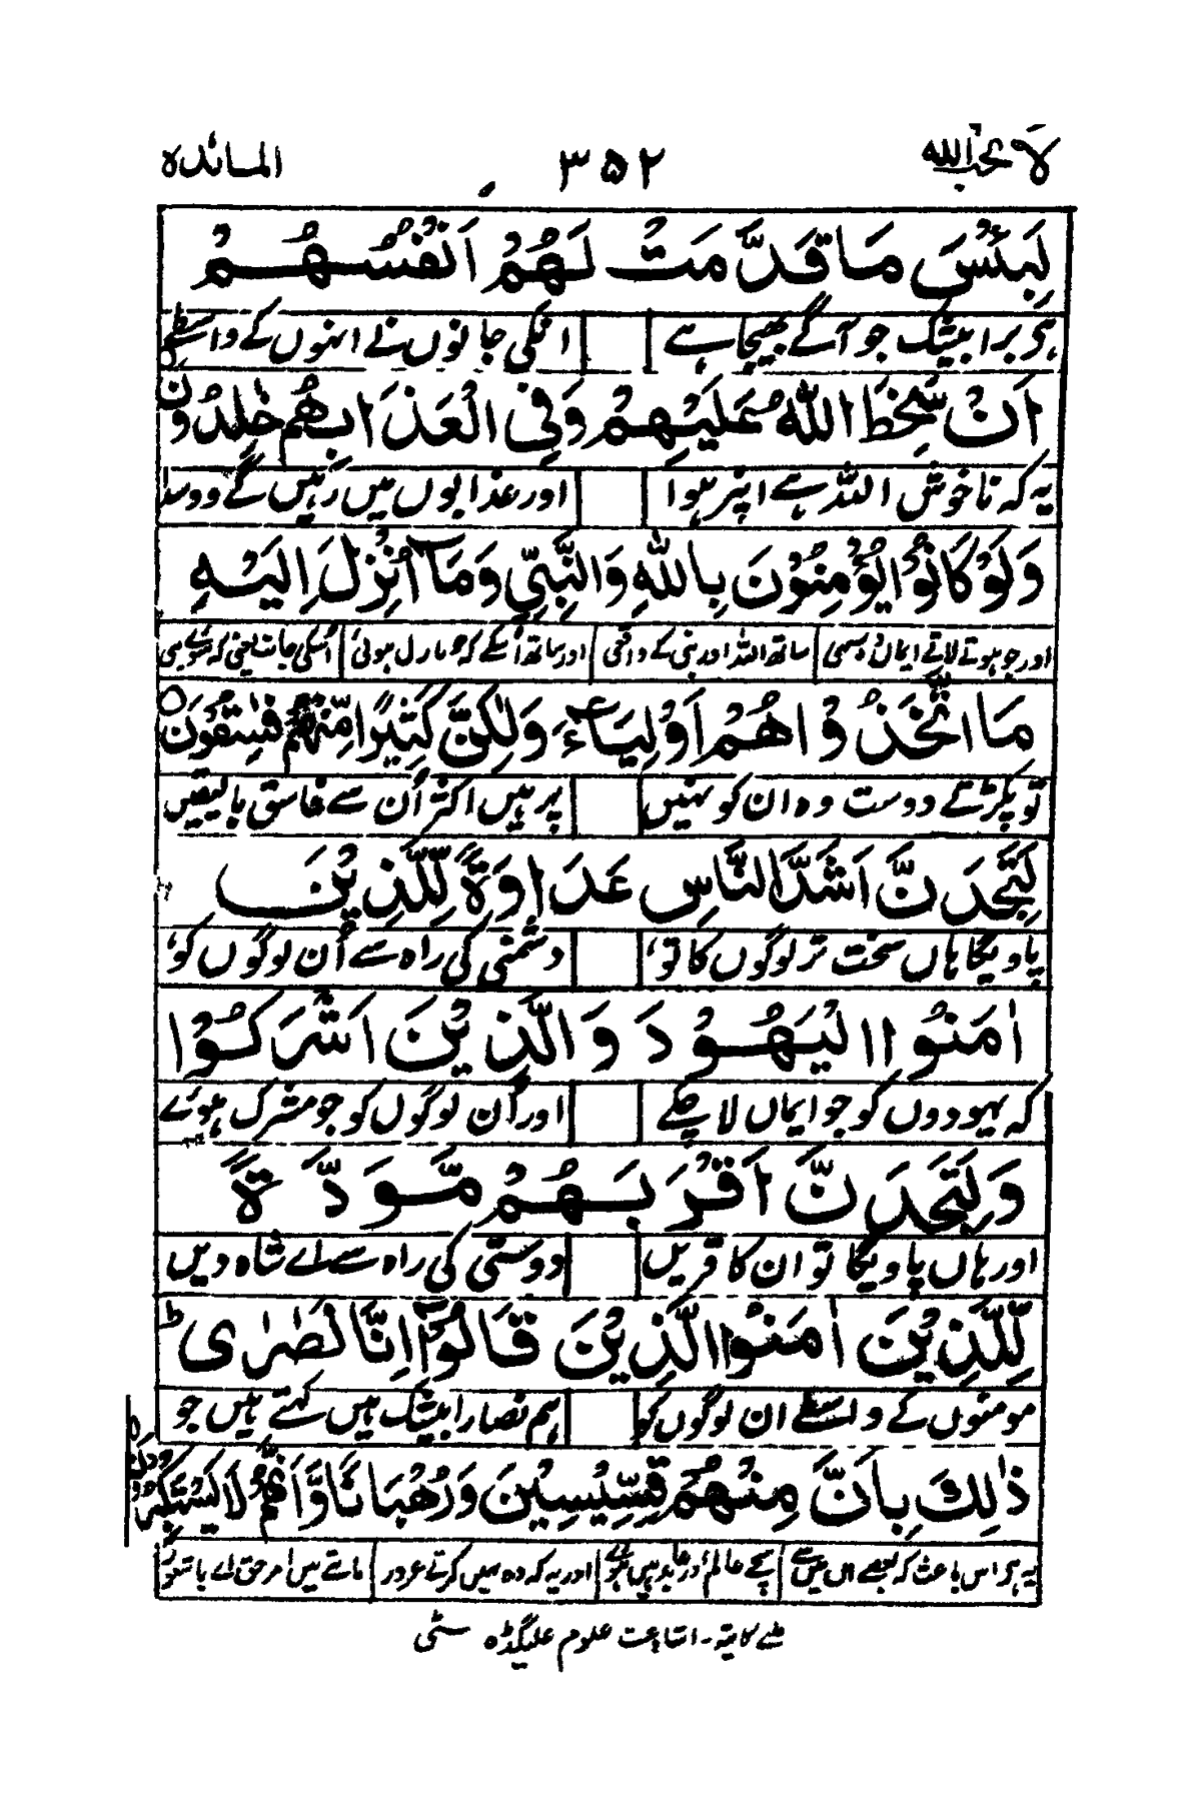 لا یحب اللہ ۳۵۲ المائدہ
لَبِئْسَ مَا قَدَّمَتْ لَهُمْ اَنْفُسُهُمْ
ہے برا بیشک جو آگے بھیجا ہے انکی جانوں نے انہوں کے واسطے
اَنْ سَخِطَ اللّٰهُ عَلَيْهِمْ وَفِي الْعَذَابِ هُمْ خٰلِدُوْنَ
یہ کہ ناخوش اللہ ہے اپنر ہوا اور عذابوں میں رہیں گے وہ سدا
وَلَوْ كَانُوْا يُؤْمِنُوْنَ بِاللّٰهِ وَالنَّبِيِّ وَمَآ اُنْزِلَ اِلَيْهِ
اور جو ہوتے لاتے ایمان ساتھ اللہ اور نبی کے واقعی اور ساتھ اُسکے کہ جو نازل ہوئی اُسکی جانب یعنی کہ
مَا اتَّخَذُوْهُمْ اَوْلِيَآءَ وَلٰكِنَّ كَثِيْرًا مِّنْهُمْ فٰسِقُوْنَ
تو پکڑتے دوست وہ ان کو نہیں پر ہیں اکثر اُن سے فاسق بالیقیں
لَتَجِدَنَّ اَشَدَّ النَّاسِ عَدَاوَةً لِّلَّذِيْنَ
پاویگا ہاں سخت تر لوگوں کا تو، دشمنی کی راہ سے اُن لوگوں کو،
اٰمَنُوا الْيَهُوْدَ وَالَّذِيْنَ اَشْرَكُوْا
کہ یہودوں کو جو ایماں لا چکے اور اُن لوگوں کو جو مشرک ہوئے
وَلَتَجِدَنَّ اَقْرَبَهُمْ مَّوَدَّةً
اور ہاں پاویگا تو ان کا قریں دوستی کی راہ سے اے شاہ دیں
لِّلَّذِيْنَ اٰمَنُوا الَّذِيْنَ قَالُوْٓا اِنَّا نَصٰرٰى ؕ
مومنوں کے واسطے ان لوگوں کو ہم نصارا بیشک ہیں کہتے ہیں جو
ذٰلِكَ بِاَنَّ مِنْهُمْ قِسِّيْسِيْنَ وَرُهْبَانًا وَّاَنَّهُمْ لَا يَسْتَكْبِرُوْنَ
یہ ہے اس باعث کہ بعضے اں میں سے عالم اور عابد ہیں اور یہ کہ وہ نہیں کرتے غرور مانتے ہیں امر حق اے با شعور
ملنے کا پتہ۔ اشاعت علوم علیگڈہ سٹی